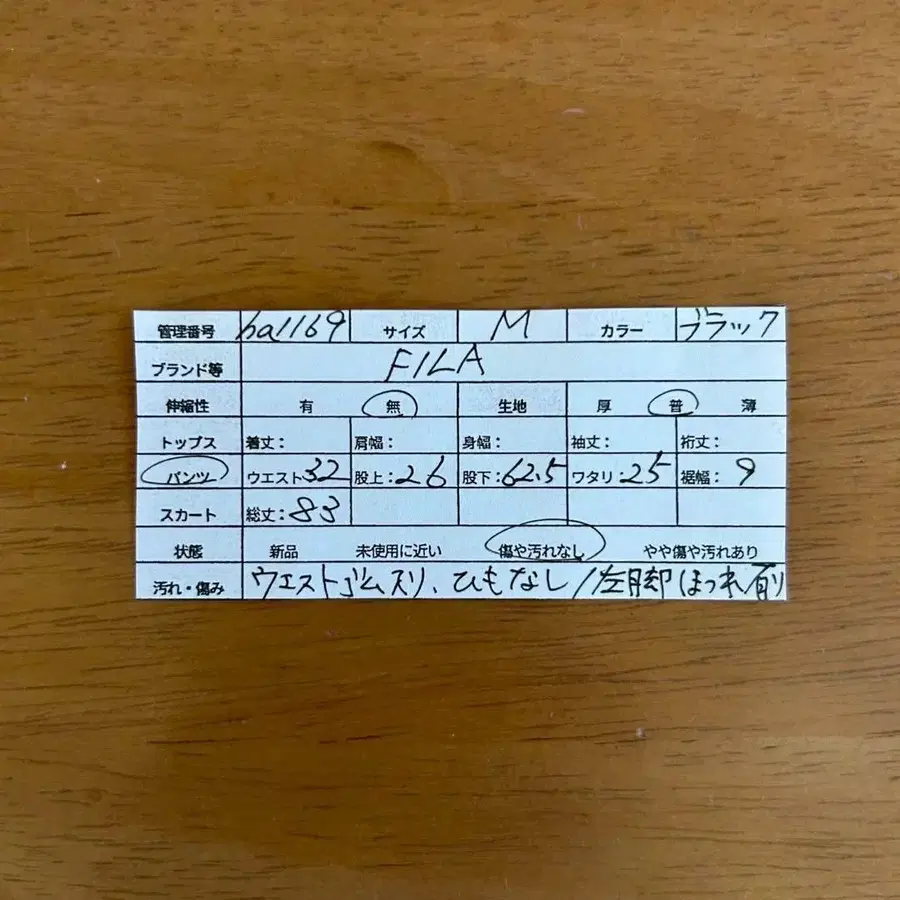 管理番号 ha1169 サイズ M カラー ブラック
ブランド等 FILA
伸縮性 有 無 生地 厚 普 薄
トップス 着丈: 肩幅: 身幅: 袖丈: 裄丈:
パンツ ウエスト32 股上:26 股下:62.5 ワタリ:25 裾幅:9
スカート 総丈:83
状態 新品 未使用に近い 傷や汚れなし やや傷や汚れあり
汚れ・傷み ウエストゴム入り、ひもなし/左脚ほつれ有り